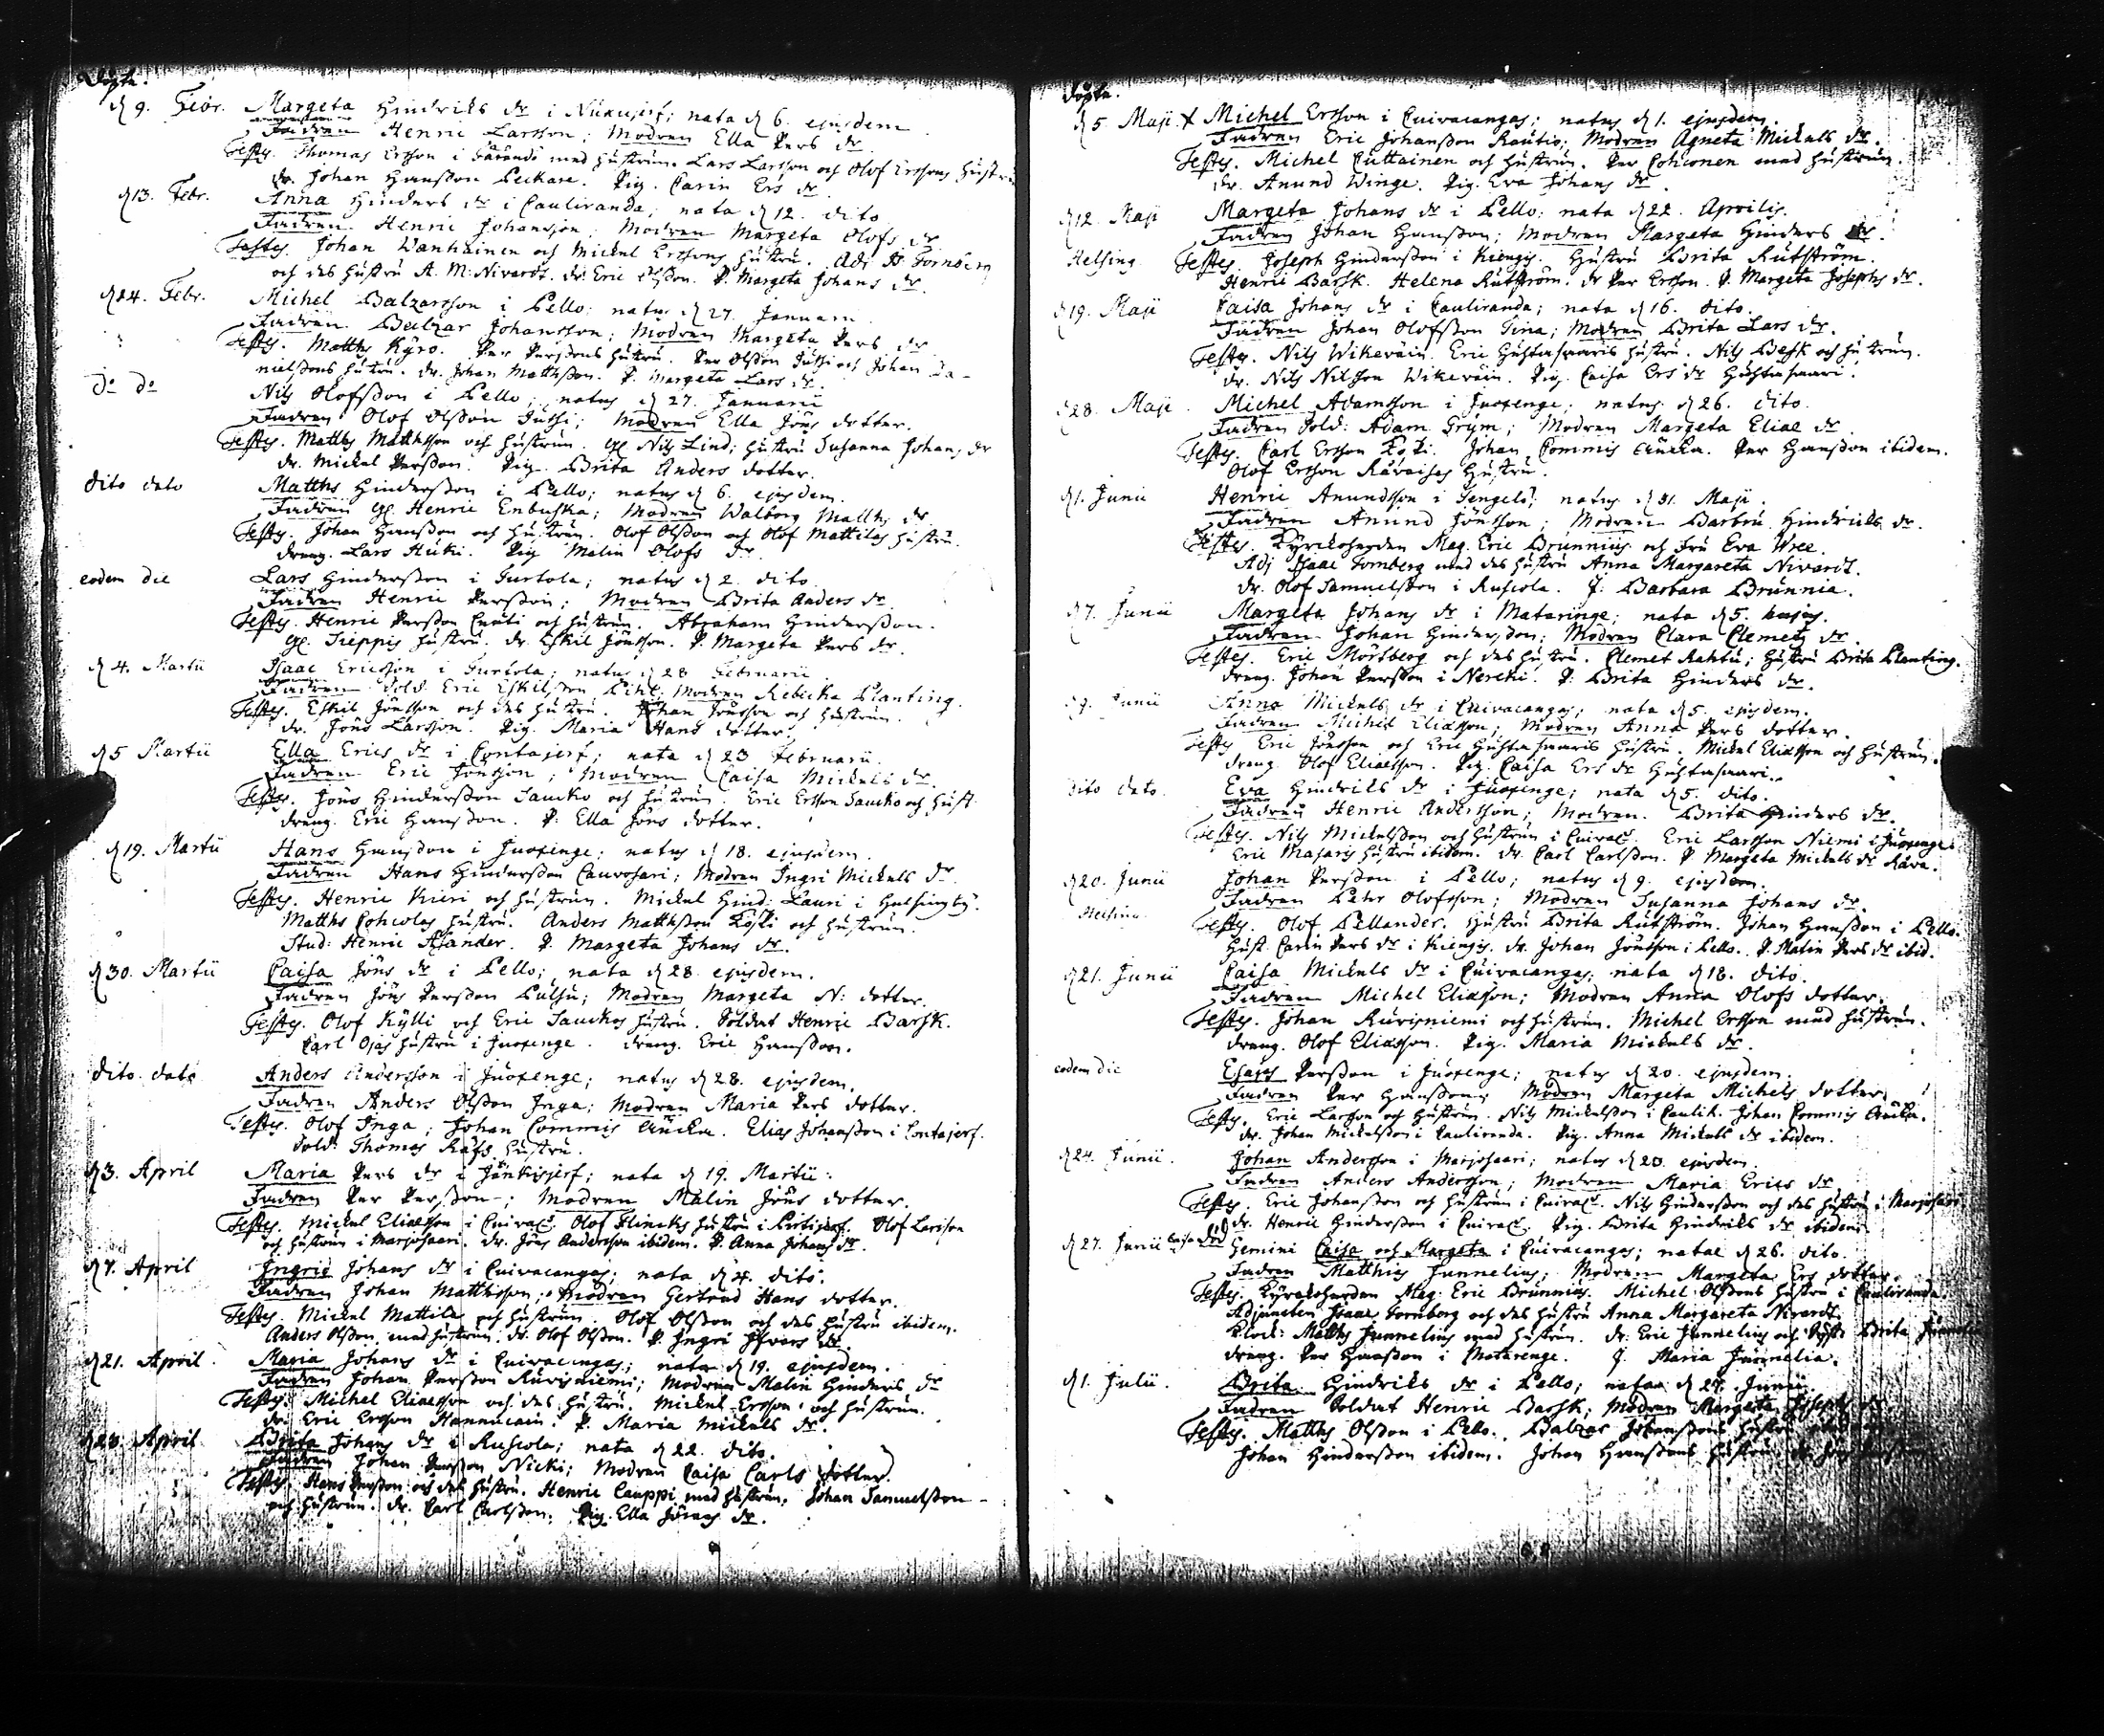 Döpte.
d 9. Febr. Margeta Hindriks dr i; nata d 6. ejusdem
Fadren Henric Larsson; Modren Ella Pers dr
Testes. Thomas Ersson i med hustrun. Lars Larsson och Olof Erssons hustru
dr. Johan Hansson Leckare. Pig. Carin Ers dr
d 13. Febr. Anna Hinders dr i Cauliranda; nata d 12. dito
Fadren Henric Johansson; Modren Margeta Olofs dr
Testes. Johan Wanhainen och Mickel Erssons hustru. Adj. Is. Fornberg
och des hustru A. M. Nivardt. dr. Eric Olsson. P. Margeta Johans dr.
d 24. Febr. Michel Balzarsson i Pello; natus d 27. Januarii
Fadren Balzar Johansson; Modren Margeta Pers dr
Testes. Matths Kyrö. Per Perssons hustru. Per Olsson Juthi och Johan Da-
nielssons hustru. dr. Johan Matthsson. P. Margeta Lars dr.
do do Nils Olofsson i Pello; natus d 27. Januarii
Fadren Olof Olsson Juthi; Modren Ella Jöns dotter.
Testes. Matths Matthsson och hustrun. Gl. Nils Lind; hustru Susanna Johans dr
dr. Mickel Persson. Pig. Brita Anders dotter.
dito dato Matths Hindersson i Pello; natus d 6. ejusdem.
Fadren Gl. Henric Enbuska; Modren Walborg Matths dr
Testes. Johan Hansson och hustrun. Olof Olsson och Olof Mattilas hustru.
dreng. Lars Huki. Pig Malin Olofs dr
eodem die Lars Hindersson i Turtola; natus d 2. dito
Fadren Henric Persson; Modren Brita Anders dr
Testes. Henric Persson och hustrun. Abraham Hindersson.
Gl. Sieppis hustru. dr. Eskil Jönsson. P. Margeta Pers dr.
d 4. Martii Isaac Ericsson i Turtola; natus d 28 Februarii
Fadren Sold. Eric Eskilsson; Modren Rebecka Planting.
Testes. Eskil Jönsson och des hustru. Johan Jönsson och hustrun.
dr. Jöns Larsson. Pig. Maria Hans dotter.
d 5 Martii Ella Erics dr i Lontajerf; nata d 23 Februarii.
Fadren Eric Jönsson; Modren Caisa Mickels dr.
Testes. Jöns Hindersson Saucko och hustrun. Eric Ersson Saucko och hust.
dreng. Eric Hansson. P. Ella Jöns dotter.
d 19. Martii Hans Hansson i Juoxenge; natus d 18. ejusdem.
Fadren Hans Hindersson Cauvosari; Modren Ingri Mickels dr
Testes. Henric Kieri och hustrun. Mickel Hind: Lauri i Helsingby.
Matths Cohcolas hustru. Anders Matthsson Koski och hustrun.
Stud: Henric Asander. P. Margeta Johans dr.
d 30. Martii Caisa Jöns dr i Pello; nata d 28. ejusdem.
Fadren Jöns Persson; Modren Margeta N: dotter.
Testes. Olof Kylli och Eric Sauckos hustru. Soldat Henric Barsk.
Carl Ojas hustru i Juoxenge. dreng. Eric Hansson.
dito dato Anders Andersson i Juoxenge; natus d 28. ejusdem.
Fadren Anders Olsson Inga; Modren Maria Pers dotter.
Testes. Olof Inga; Johan Commis Aucka. Elias Johansson i Lontajerf.
Sold: Thomas Räfs hustru.
d 3. April Maria Pers dr i Jänkisjerf; nata d 19. Martii.
Fadren Per Persson; Modren Malin Jöns dotter.
Testes. Mickel Eliasson i Cuivac. Olof Flincks hustru i. Olof Larsson
och hustrun i Marjosaari. dr. Jöns Andersson ibidem. P. Anna Johans dr.
d 7. April Ingrid Johans dr i Cuivacangas; nata d 4. dito.
Fadren Johan Matthsson; Modren Gertrud Hans dotter.
Testes. Mickel Mattila och hustrun. Olof Olsson och des hustru ibidem.
Anders Olsson med hustrun. dr. Olof Olsson. P. Ingri dr
d 21. April. Maria Johans dr i Cuivacangas; nata d 19. ejusdem.
Fadren Johan Persson Ruvisniemi; Modren Malin Hinders dr
Testes. Michel Eliasson och des hustru. Mickel Ersson och hustrun.
dr. Eric Ersson. P. Maria Mickels dr.
d 23. April Brita Johans dr i Ruscola; nata d 22. dito.
Fadren Johan Persson Nicki; Modren Caisa Carls dotter.
Testes. Hans Persson och des hustru. Henric Lauppi med hustrun. Johan Samuelsson
och hustrun. dr. Carl Carlsson. Pig. Ella dr.
Döpte.
d 5. Maji Michel Ersson i Cuivacangas; natus d 1. ejusdem.
Fadren Eric Johansson Rautio; Modren Agneta Mickels dr.
Testes. Michel Cuttainen och hustrun. Per med hustrun.
dr. Anund Winge. Pig. Eva Johans dr.
d 12. Maji Margeta Johans dr i Pello; nata d 22. Aprilis.
Fadren Johan Hansson; Modren Margeta Hinders dr.
Helsing. Testes. Joseph Hindersson i Kiengis. Hustru Brita Rutström.
Henric Barsk. Helena Rutström. dr Per Ersson. P. Margeta Josephs dr.
d 19. Maji Caisa Johans dr i Cauliranda; nata d 16. dito.
Fadren Johan Olofsson; Modren Brita Lars dr.
Testes. Nils Wikeväin. Eric Huhtasaaris hustru. Nils Besk och hustrun.
dr. Nils Nilsson Wikeväin. Pig. Caisa Ers dr Huhtasaari.
d 28. Maji. Michel Adamsson i Juoxenge; natus d 26. dito.
Fadren Sold: Adam Grym; Modren Margeta Eliae dr
Testes. Carl Ersson Koski. Johan Commis Aucka. Per Hansson ibidem.
Olof Ersson hustru.
d 1. Junii Henric Anundsson i Tengelö; natus d 31. Maji.
Fadren Anund Jönsson; Modren Barbru Hindriks dr.
Testes. Kyrckoherden Mag. Eric Brunnius och Fru Eva Wree.
Adj Isaac Fornberg med des hustru Anna Margareta Nivardt.
dr. Olof Samuelsson i Ruscola. J. Barbara Brunnia.
d 7. Junii Margeta Johans dr i Mataringe; nata d 5. hujus.
Fadren Johan Hindersson; Modren Clara Clemets dr.
Testes. Eric Mörtberg och des hustru. Clemet Rahtu; hustru Brita Planting.
dreng. Johan Persson i Nercki. P. Brita Hinders dr.
d 9. Junii Anna Mickels dr i Cuivacangas; nata d 5. ejusdem.
Fadren Michel Eliasson; Modren Anna Pers dotter.
Testes Eric Jönsson och Eric Huhtasaaris hustru. Mickel Eliasson och hustrun.
dreng. Olof Eliaesson. Pig. Caisa Ers dr Huhtasaari.
dito dato. Eva Hindriks dr i Juoxenge; nata d 5. dito.
Fadren Henric Andersson; Modren. Brita Hinders dr.
Testes. Nils Mickelsson och hustrun i Cuivac. Eric Larsson Niemi i Juoxenge.
Eric Majaris hustru ibidem. dr. Carl Carlsson. P. Margeta Mickels dr
d 20. Junii Johan Persson i Pello; natus d 9. ejusdem.
Fadren Petr Olofsson; Modren Susanna Johans dr.
Helsing. Testes. Olof Pellander. Hustru Brita Rutström. Johan Hansson i Pello.
Hust. Carin Pers dr i Kiengis. dr. Johan Jönsson i Pello. P. Malin Pers dr ibid.
d 21. Junii Caisa Mickels dr i Cuivacangas; nata d 18. dito.
Fadren Michel Eliasson; Modren Anna Olofs dotter.
Testes. Johan Ruvisniemi och hustrun. Michel Ersson med hustrun.
dreng. Olof Eliasson. Pig. Maria Mickels dr.
eodem die Esajas Persson i Juoxenge; natus d 20. ejusdem.
Fadren Per Hansson; Modren Margeta Michels dotter.
Testes. Eric Larsson och hustrun. Nils Mickelsson i Caulir. Johan Commis Aucka.
dr. Johan Mickelsson i Cauliranda. Pig. Anna Mickels dr ibidem.
d 24. Junii. Johan Andersson i Marjosaari; natus d 20. ejusdem.
Fadren Anders Andersson; Modren Maria Erics dr
Testes. Eric Johansson och hustrun i Cuivac. Nils Hindersson och des hustru i Marjosaari
dr. Henric Hindersson i Cuivac. Pig. Brita Hindriks dr ibidem.
d 27. Junii Gemini Caisa och Margeta i Cuivacangas; natae d 26. dito.
Fadren Matthias Junnelius; Modren Margeta Ers dotter.
Testes. Kyrckoherden Mag. Eric Brunnius. Michel Olssons hustru i Cauliranda.
Adjuncten Isaac Fornberg och des hustru Anna Margareta Nivardt.
Klock: Matths Junnelius med hustrun. dr. Eric Junnelius och Brita
dreng. Per Hansson i Matarenge. J. Maria Junnelia.
d 1. Julii. Brita Hindriks dr i Pello; nata d 27. Junii.
Fadren Soldat Henric Barsk; Modren Margeta Josephs dr
Testes. Matths Olsson i Pello. Balzar Johanssons hustru
Johan Hindersson ibidem. Johan Hanssons hustru